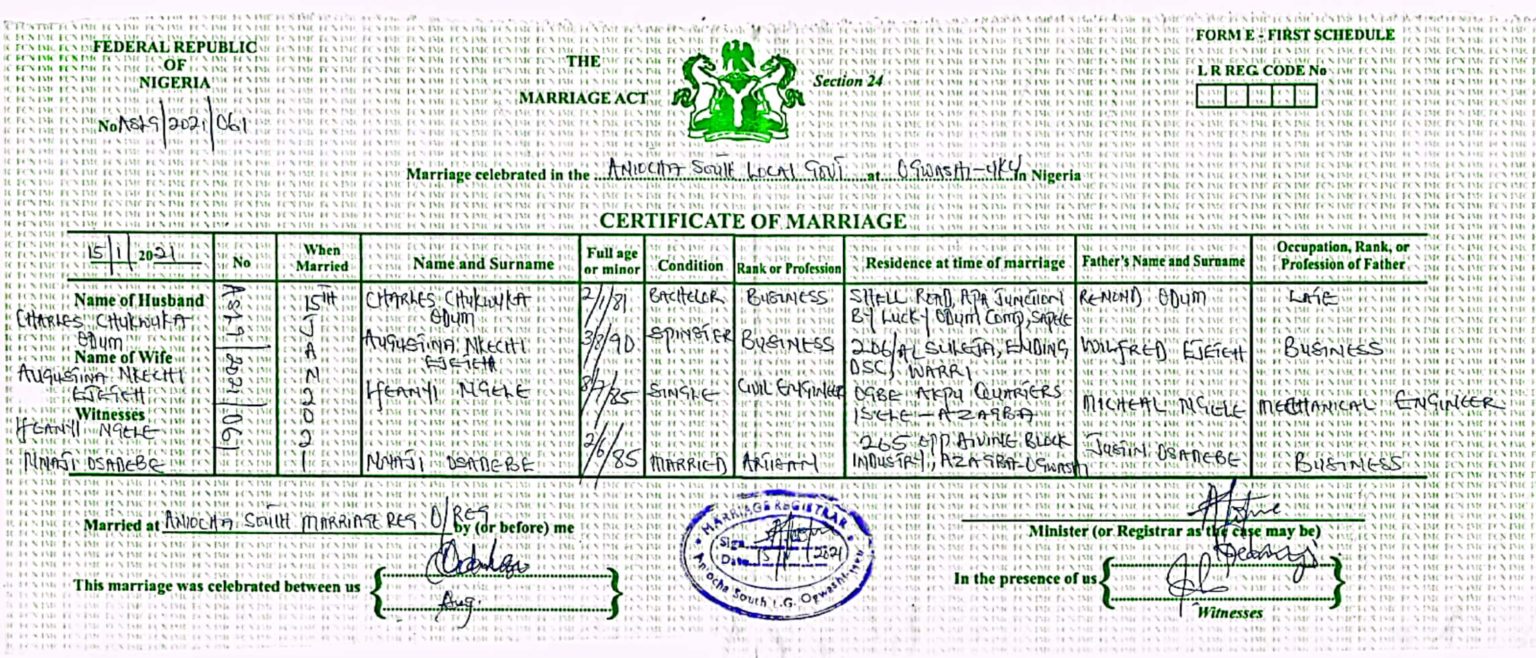 FEDERAL REPUBLIC
OF
NIGERIA
No ASLG/2021/061
THE
MARRIAGE ACT
Section 24
FORM E - FIRST SCHEDULE
L R REG. CODE No
Marriage celebrated in the ANIOCHA SOUTH LOCAL GOVT at OGWASHI-UKU in Nigeria
CERTIFICATE OF MARRIAGE
15/1/2021
No
When Married
Name and Surname
Full age or minor
Condition
Rank or Profession
Residence at time of marriage
Father's Name and Surname
Occupation, Rank, or Profession of Father
Name of Husband
CHARLES CHUKWUKA
ODUM
Name of Wife
AUGUSTINA NKECHI
EJEIEH
Witnesses
IFEANYI NGELE
NNAJI OSADEBE
ASLG/2021/061
15TH JAN 2021
CHARLES CHUKWUKA
ODUM
2/1/81
BACHELOR
BUSINESS
SHELL ROAD, APA JUNCTION
BY LUCKY ODUM COMP, SAPELE
REMOND ODUM
LATE
AUGUSTINA NKECHI
EJEIEH
3/8/90
SPINSTER
BUSINESS
DSC, WARRI
WILFRED EJEIEH
BUSINESS
IFEANYI NGELE
8/7/85
SINGLE
CIVIL ENGINEER
OGBE AKPU QUARTERS
ISELE-AZAGBA
MICHEAL NGELE
MECHANICAL ENGINEER
NNAJI OSADEBE
2/6/85
MARRIED
ARTISAN
265 OPP DIVINE BLOCK
INDUSTRY, AZAGBA-OGWASHI
JUSTIN OSADEBE
BUSINESS
Married at ANIOCHA SOUTH MARRIAGE REG O/REG by (or before) me
Minister (or Registrar as the case may be)
This marriage was celebrated between us
Aug.
MARRIAGE REGISTRAR
Sign
Date 15/1/2021
Aniocha South L.G. Ogwashi-Uku
In the presence of us
Witnesses